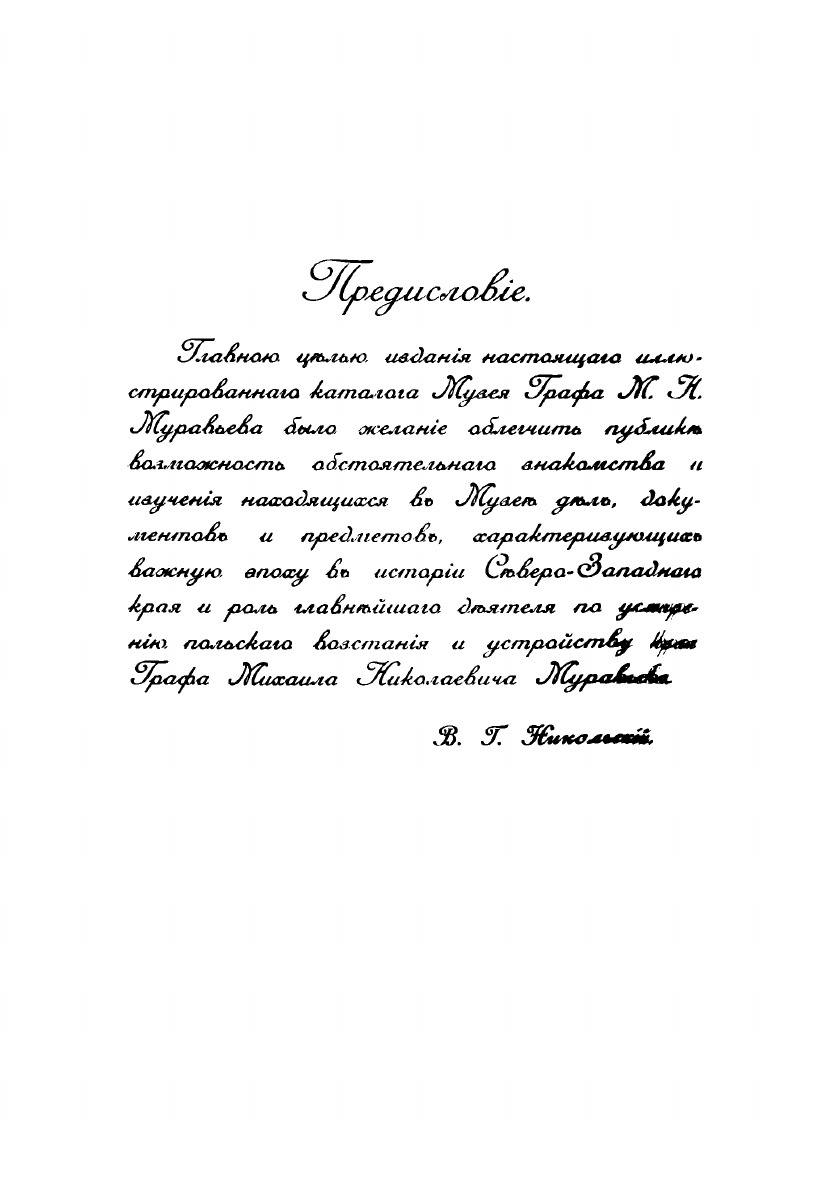 Предисловіе.
Главною цѣлью изданія настоящаго иллю-
стрированнаго каталога Музея Графа М. Н.
Муравьева было желаніе облегчить публикѣ
возможность обстоятельнаго знакомства и
изученія находящихся въ Музеѣ дѣлъ, доку-
ментовъ и предметовъ, характеризующихъ
важную эпоху въ исторіи Сѣверо-Западнаго
края и роль главнѣйшаго дѣятеля по усмире-
нію польскаго возстанія и устройству края
Графа Михаила Николаевича Муравьева
В. Г. Никольскій.